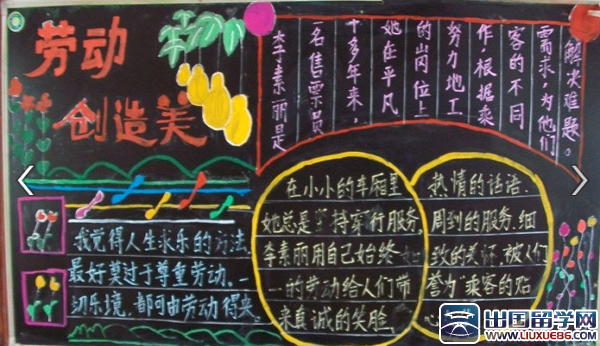 劳动
创造美
李素丽是
一名售票员
十多年来,
她在平凡
的岗位上
努力地工
作,根据乘
客的不同
需求,为他们
解决难题。
我觉得人生求乐的方法,
最好莫过于尊重劳动。一
切乐境,都可由劳动得来。
在小小的车厢里
她总是 持穿行服务,
李素丽用自己始终如
一的劳动给人们带
来真诚的笑脸,
热情的话语.
周到的服务.细
致的关怀.被人们
誉为"乘客的贴
心
出国留学网
WWW.LIUXUE86.COM